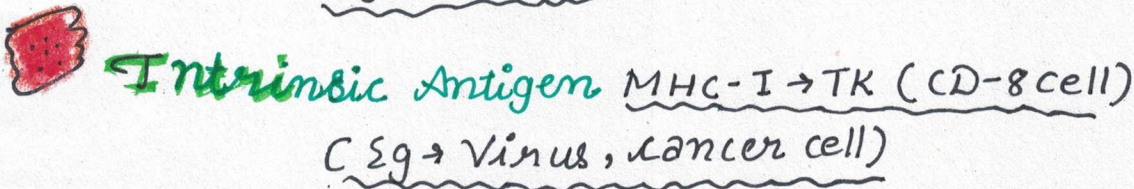 Intrinsic Antigen MHC-I → TK (CD-8 cell)
(Eg → Virus, cancer cell)